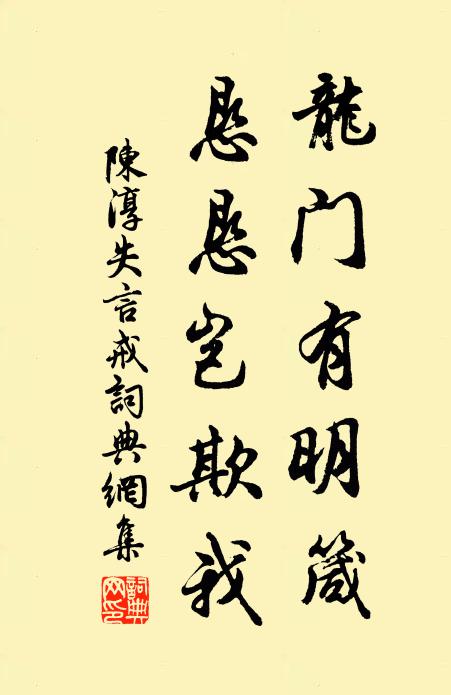 龍门有明箴
恳恳岂欺我
陳淳失言戒詞典網集
詞典
网印